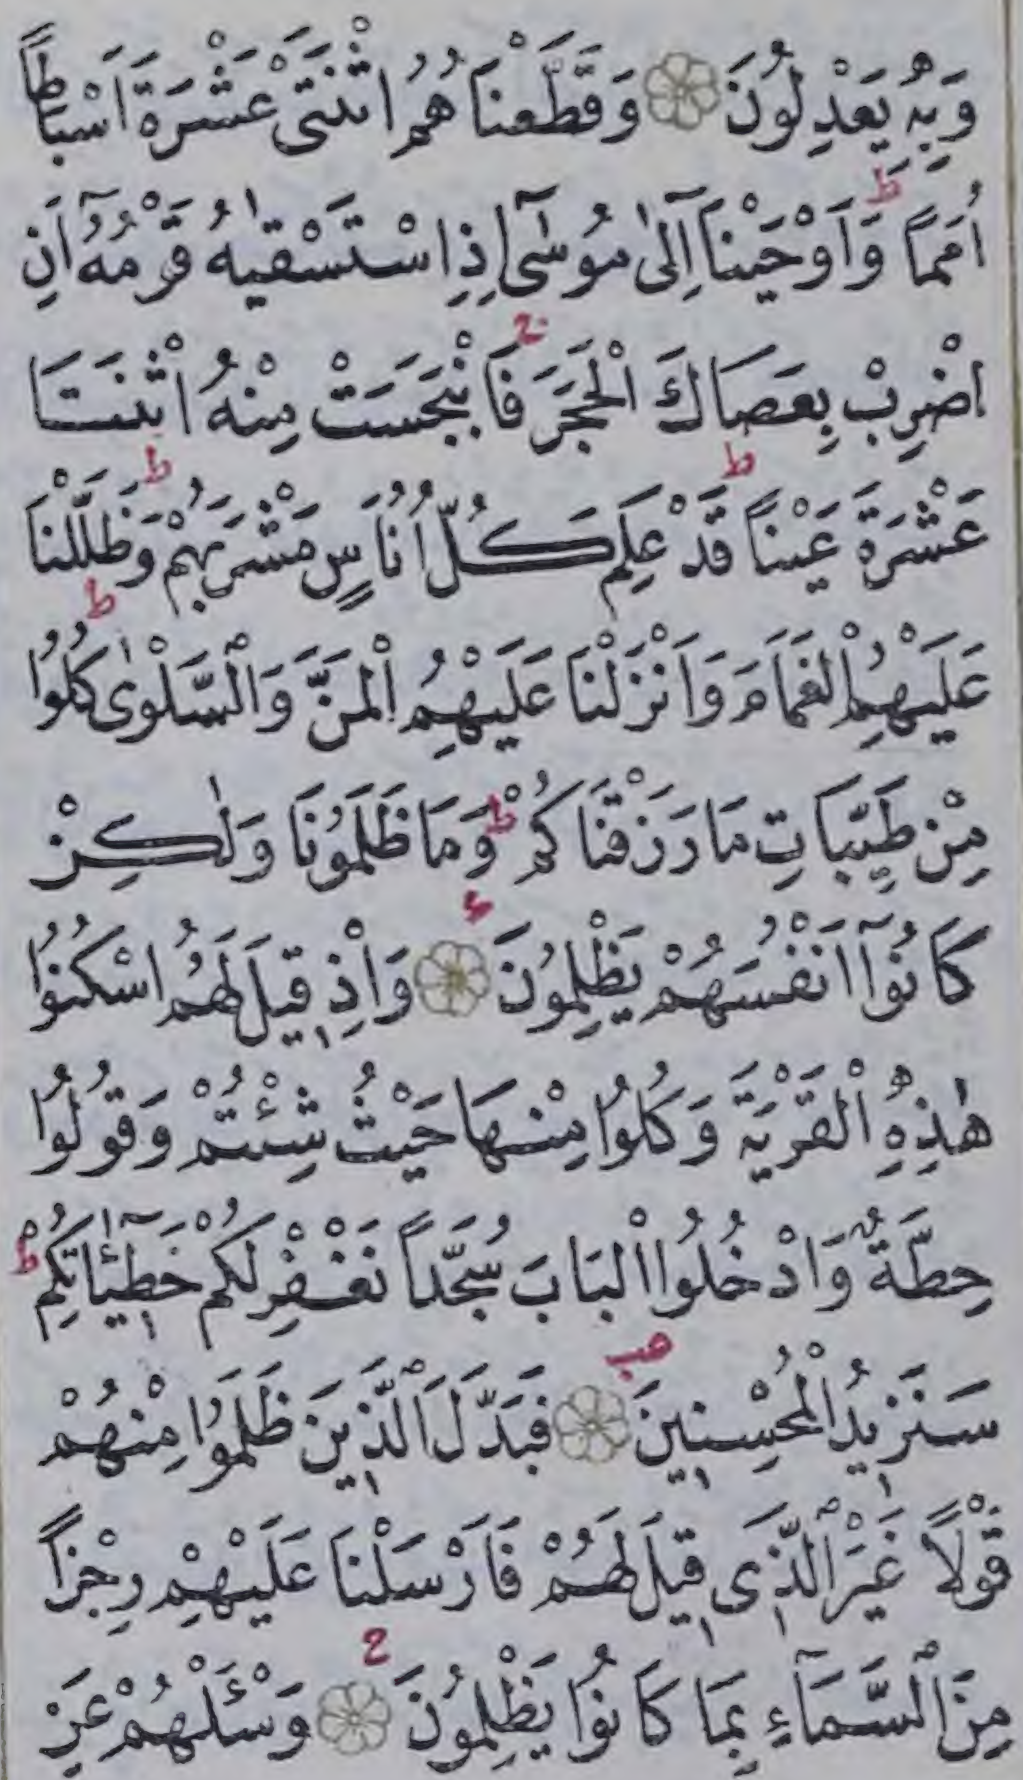 وَبِهٖ يَعْدِلُونَ ۝ وَقَطَّعْنَاهُمُ اثْنَتَىْ عَشْرَةَ اَسْبَاطًا
اُمَمًا ط وَاَوْحَيْنَآ اِلٰى مُوسٰٓى اِذِ اسْتَسْقٰيهُ قَوْمُهُٓ اَنِ
اضْرِبْ بِعَصَاكَ الْحَجَرَ ج فَانْبَجَسَتْ مِنْهُ اثْنَتَا
عَشْرَةَ عَيْنًا ط قَدْ عَلِمَ كُلُّ اُنَاسٍ مَشْرَبَهُمْ ط وَظَلَّلْنَا
عَلَيْهِمُ الْغَمَامَ وَاَنْزَلْنَا عَلَيْهِمُ الْمَنَّ وَالسَّلْوٰى ط كُلُوا
مِنْ طَيِّبَاتِ مَا رَزَقْنَاكُمْ ط وَمَا ظَلَمُونَا وَلٰكِنْ
كَانُوٓا اَنْفُسَهُمْ يَظْلِمُونَ ۝ وَاِذْ قِيلَ لَهُمُ اسْكُنُوا
هٰذِهِ الْقَرْيَةَ وَكُلُوا مِنْهَا حَيْثُ شِئْتُمْ وَقُولُوا
حِطَّةٌ وَادْخُلُوا الْبَابَ سُجَّدًا نَغْفِرْ لَكُمْ خَطِٓيـَٔاتِكُمْ ط
سَنَزِيدُ الْمُحْسِنِينَ ۝ فَبَدَّلَ الَّذِينَ ظَلَمُوا مِنْهُمْ
قَوْلًا غَيْرَ الَّذِى قِيلَ لَهُمْ فَاَرْسَلْنَا عَلَيْهِمْ رِجْزًا
مِنَ السَّمَٓاءِ بِمَا كَانُوا يَظْلِمُونَ ۝ وَسْـَٔلْهُمْ عَنِ